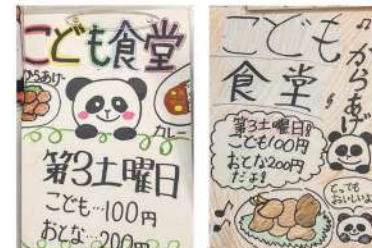 こども食堂
からあげ
カレー
第3土曜日
こども…100円
おとな…200円
こども
食堂
からあげ
第3土曜日!
こども100円
おとな200円
だよ!
とっても
おいしいよ